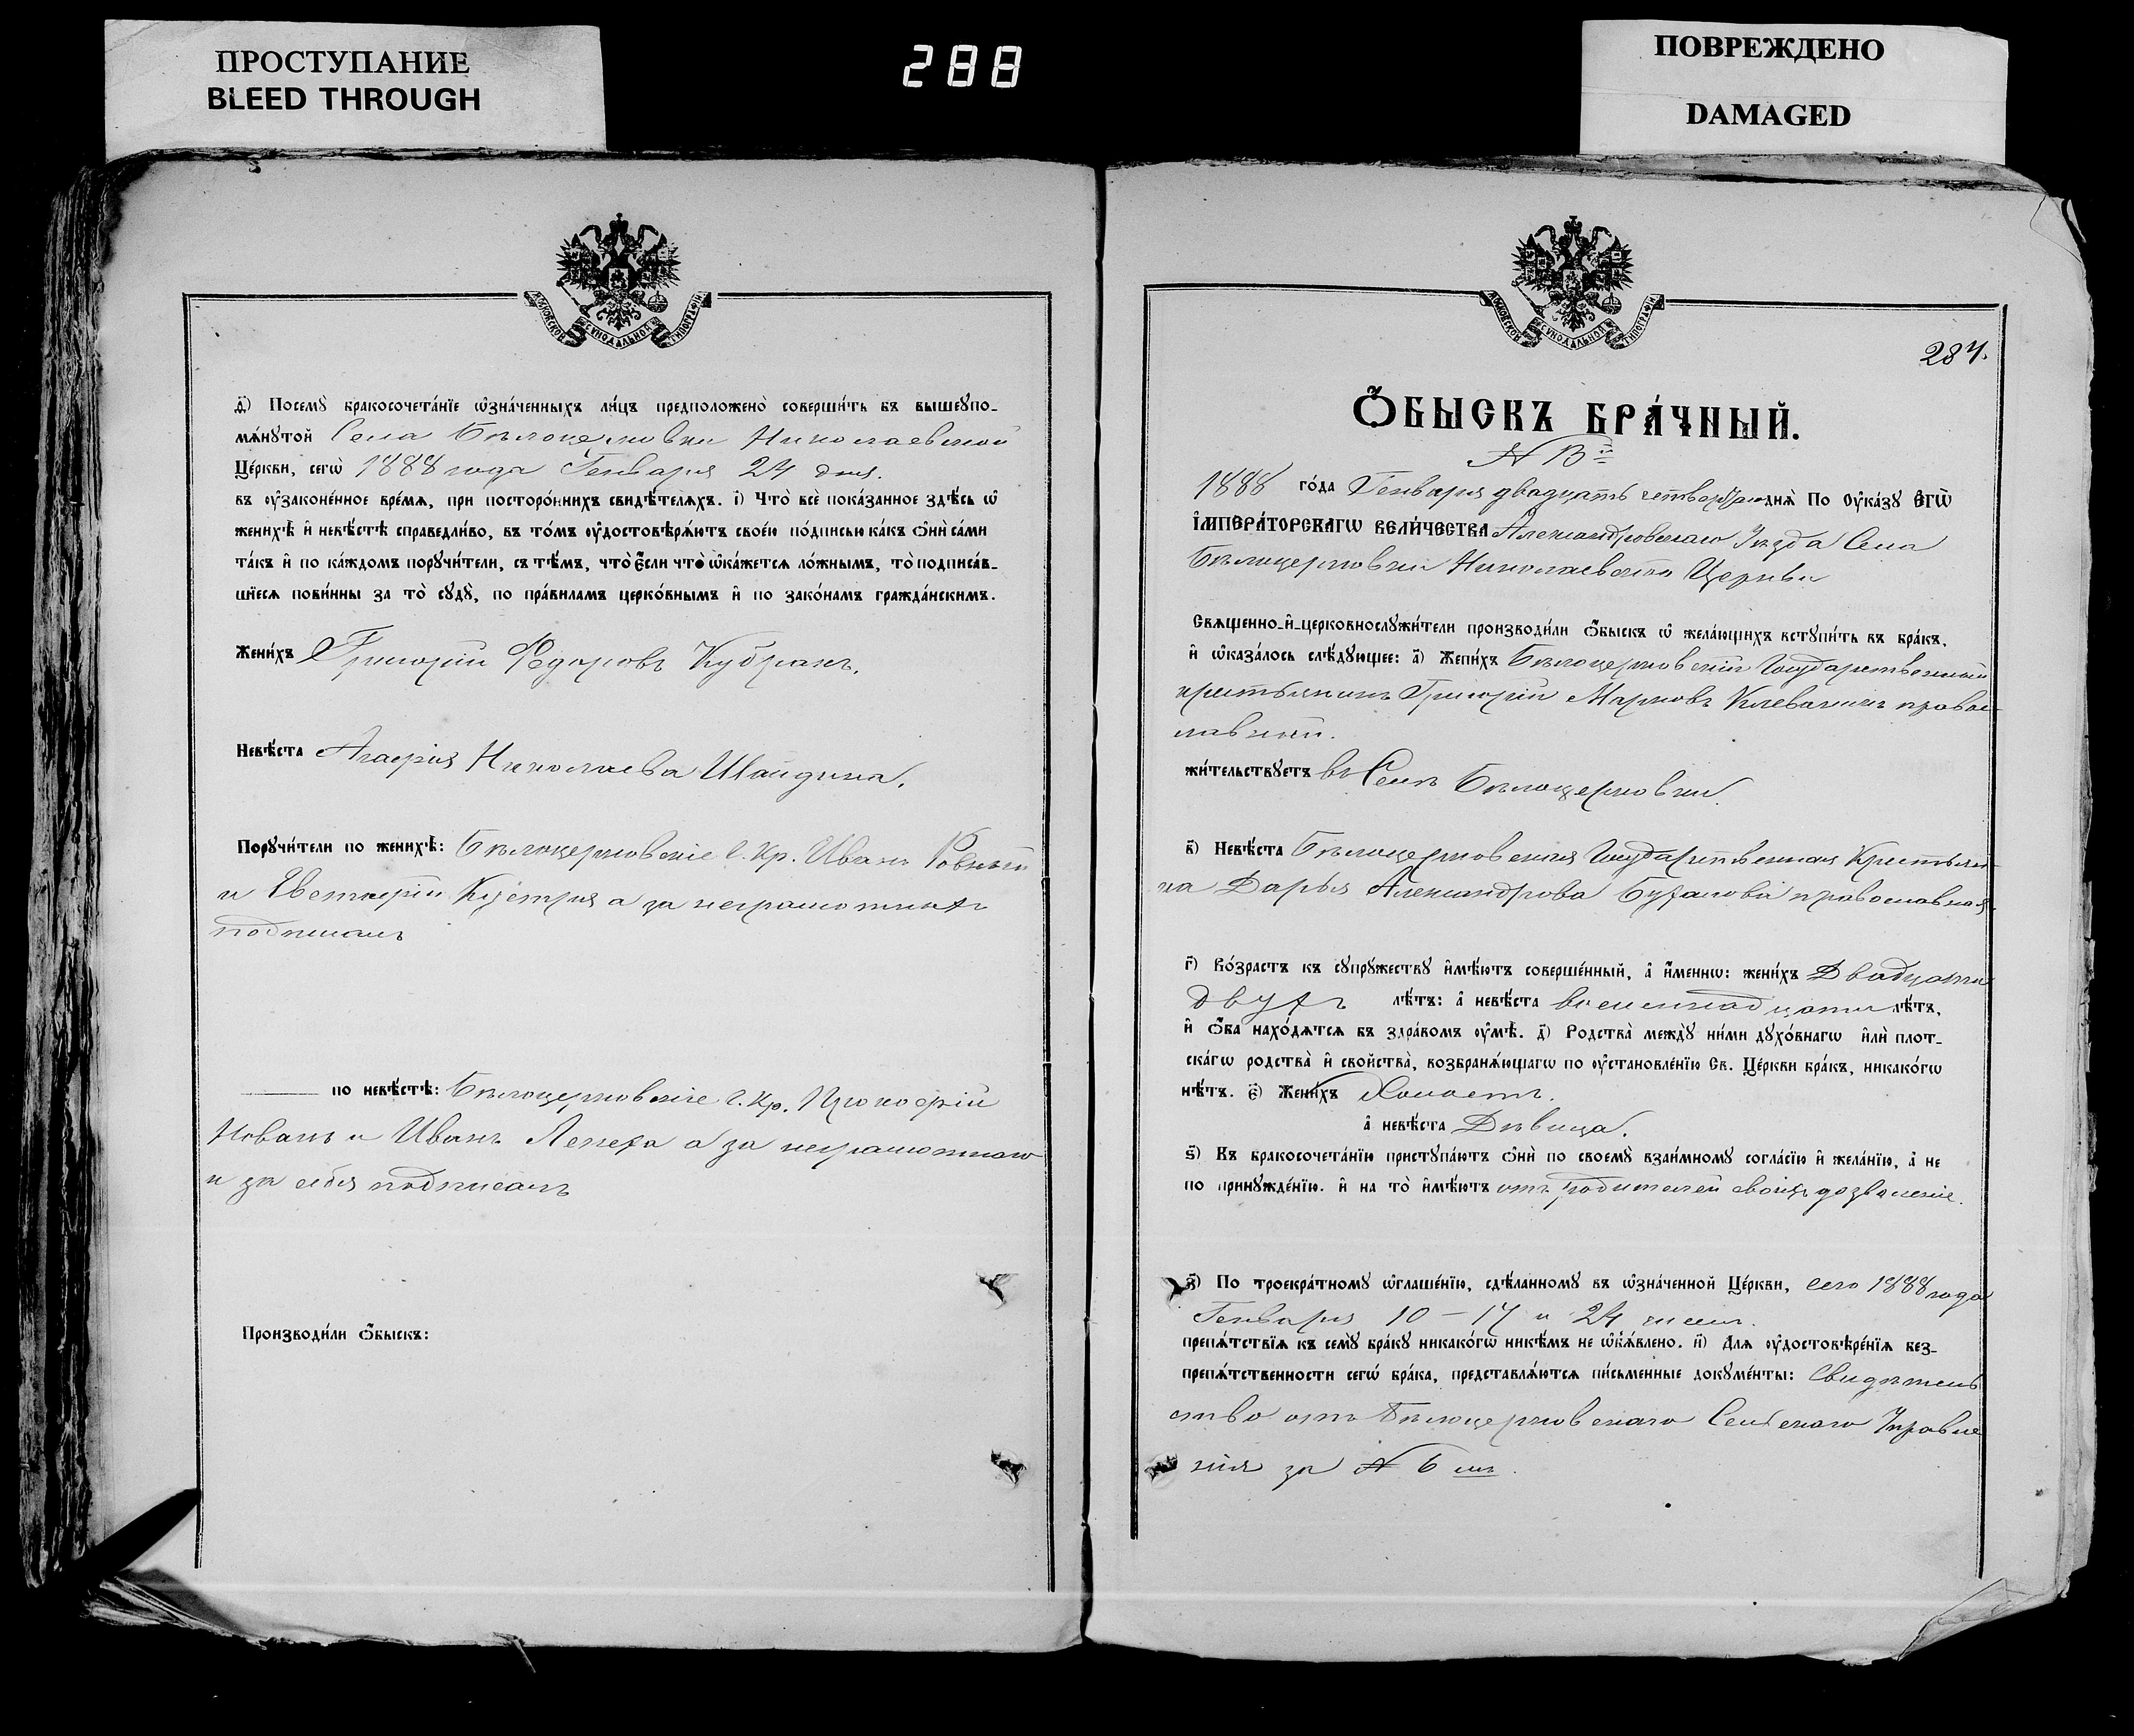 ПРОСТУПАНИЕ
BLEED THROUGH
288
ПОВРЕЖДЕНО
DAMAGED
МОСКОВСКОЙ СУНОДАЛЬНОЙ ТИПОГРАФІИ
д҃) Посемꙋ̀ бракосочета́нїе ѡ҆зна́ченныхъ ли́цъ предположено̀ соверши́ть въ вышеꙋпо-
мѧ́нꙋтой Села Бѣлоцерковки Николаевской
Це́ркви, сегѡ̀ 1888 года Генваря 24 дня.
въ оу҆законе́нное вре́мѧ, при посторо́ннихъ свидѣ́телѧхъ. і҃) Что̀ всѐ пока́занное здѣ́сь ѡ҆
женихѣ̀ и҆ невѣ́стѣ справедли́во, въ то́мъ оу҆достовѣрѧ́ютъ свое́ю по́дписью ка́къ ѻ҆нѝ са́ми
та́къ и҆ по ка́ждомъ порꙋчи́тели, съ тѣ́мъ, что̀ є҆́сли что̀ ѡ҆ка́жетсѧ ло́жнымъ, то̀ подписа́в-
шїесѧ пови́нны за то̀ сꙋдꙋ̀, по пра́виламъ церко́внымъ и҆ по зако́намъ гражда́нскимъ.
Жени́хъ Григорій Федоровъ Кубракъ.
Невѣ́ста Агафія Николаева Шайдина.
Порꙋчи́тели по женихѣ̀: Бѣлоцерковскіе Г. Кр. Иванъ Ровный
и а за неграмотныхъ
подписалъ
по невѣ́стѣ: Бѣлоцерковскіе Г. Кр. Прокофій
Новакъ и Иванъ Лепеха а за неграмотнаго
и за себя подписалъ
Производи́ли ѻ҆́быскъ:
МОСКОВСКОЙ СУНОДАЛЬНОЙ ТИПОГРАФІИ
287.
Ѻ҆́БЫСКЪ БРА́ЧНЫЙ.
1888 го́да Генваря двадцать четвертаго днѧ̀ По оу҆ка́зꙋ Є҆ГѠ̀
І҆МПЕРА́ТОРСКАГѠ ВЕЛИ́ЧЕСТВА Александровскаго Уѣзда Села
Бѣлоцерковки Николаевской Церкви
Свѧщенно-и҆-церковнослꙋжи́тели производи́ли ѻ҆́быскъ ѡ҆ жела́ющихъ встꙋпи́ть въ бра́къ,
и҆ ѡ҆каза́лось слѣ́дꙋющее: а҃) Жени́хъ Бѣлоцерковскій Государственный
крестьянинъ Григорій Марковъ правос-
лавный.
жи́тельствꙋетъ въ Селѣ Бѣлоцерковки.
в҃) Невѣ́ста Бѣлоцерковская Государственная Крестьян-
ка Дарья Александрова православная.
г҃) Во́зрастъ къ сꙋпрꙋ́жествꙋ и҆мѣ́ютъ соверше́нный, а҆ и҆́меннѡ: жени́хъ Двадцати
двухъ лѣ́тъ: а҆ невѣ́ста восемнадцати лѣ́тъ,
и҆ ѻ҆́ба нахо́дѧтсѧ въ здра́вомъ оу҆мѣ̀. д҃) Родства̀ междꙋ̀ ни́ми дꙋхо́внагѡ и҆лѝ плот-
ска́гѡ родства̀ и҆ свойства̀, возбранѧ́ющагѡ по оу҆становле́нїю Св. Це́ркви бра́къ, никако́гѡ
нѣ́тъ. є҃) Жени́хъ Холостъ.
а҆ невѣ́ста Дѣвица.
ѕ҃) Къ бракосочета́нїю пристꙋпа́ютъ ѻ҆нѝ по своемꙋ̀ взаи́мномꙋ согла́сїю и҆ жела́нїю, а҆ не
по принꙋжде́нїю. и҆ на то̀ и҆мѣ́ютъ отъ родителей своихъ дозволеніе.
з҃) По троекра́тномꙋ ѡ҆глаше́нїю, сдѣ́ланномꙋ въ ѡ҆зна́ченной Це́ркви, сего 1888 года
Генваря 10 – 17 и 24 чиселъ.
препѧ́тствїѧ къ семꙋ̀ бра́кꙋ никако́гѡ никѣ́мъ не ѡ҆бѧ́влено. и҃) Длѧ оу҆достовѣре́нїѧ без-
препѧ́тственности сегѡ̀ бра́ка, представлѧ́ютсѧ пи́сьменные докꙋме́нты: Свидѣтель
ство отъ Бѣлоцерковскаго Сельскаго Управле
нія за № 6 мъ.